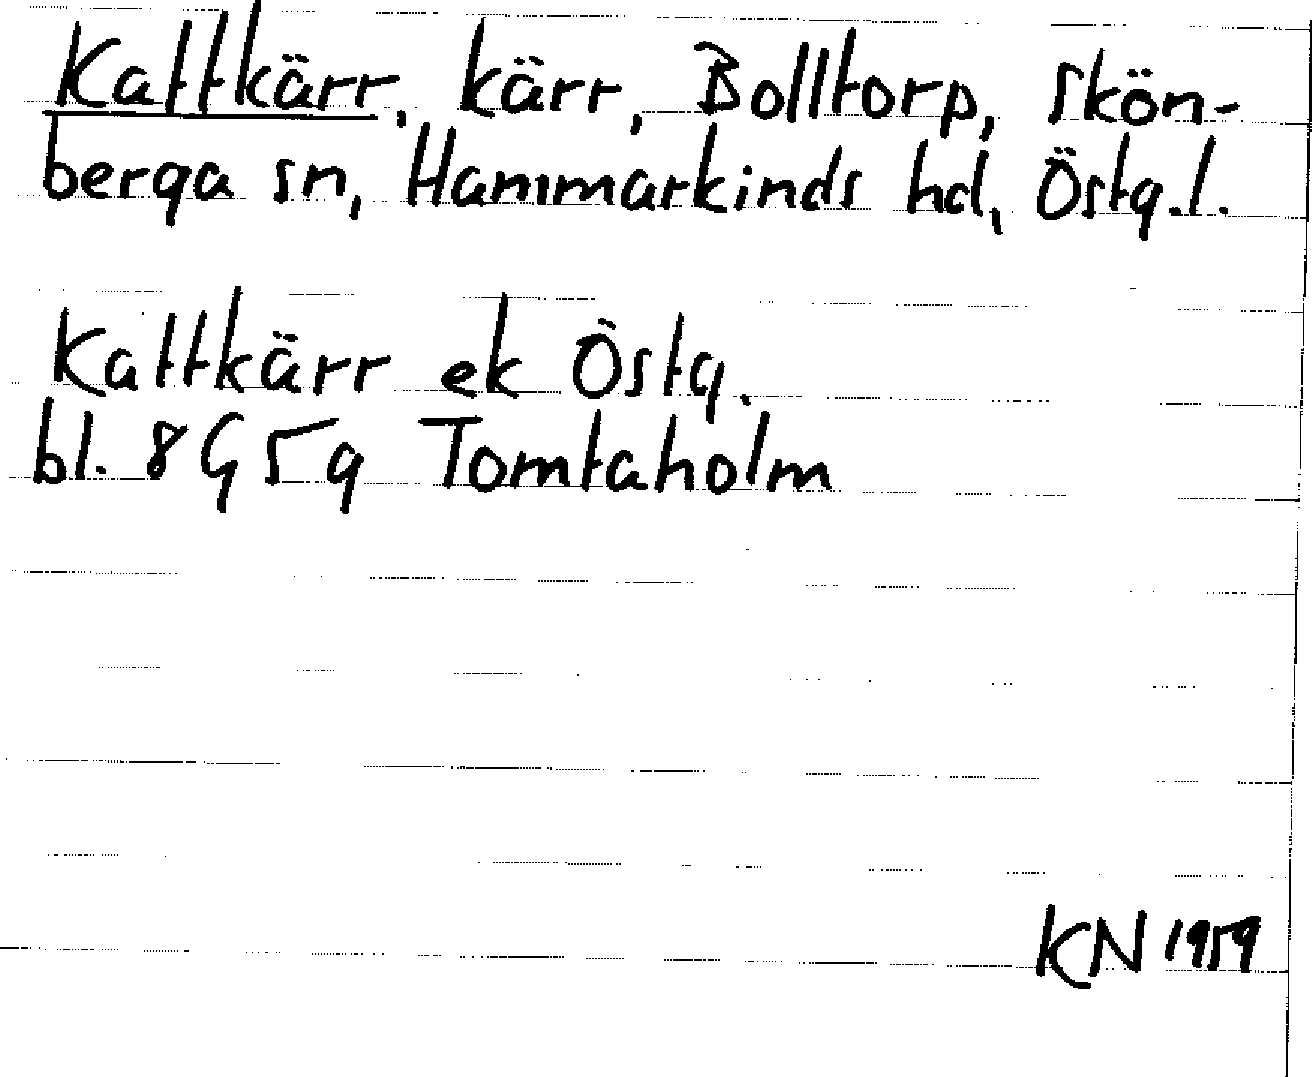 Kattkärr, kärr, Bolltorp, Skön-
berga sn, Hammarkinds hd, Östg.l.
Kattkärr ek Östg.
bl. 8G5g Tomtaholm
KN 1959